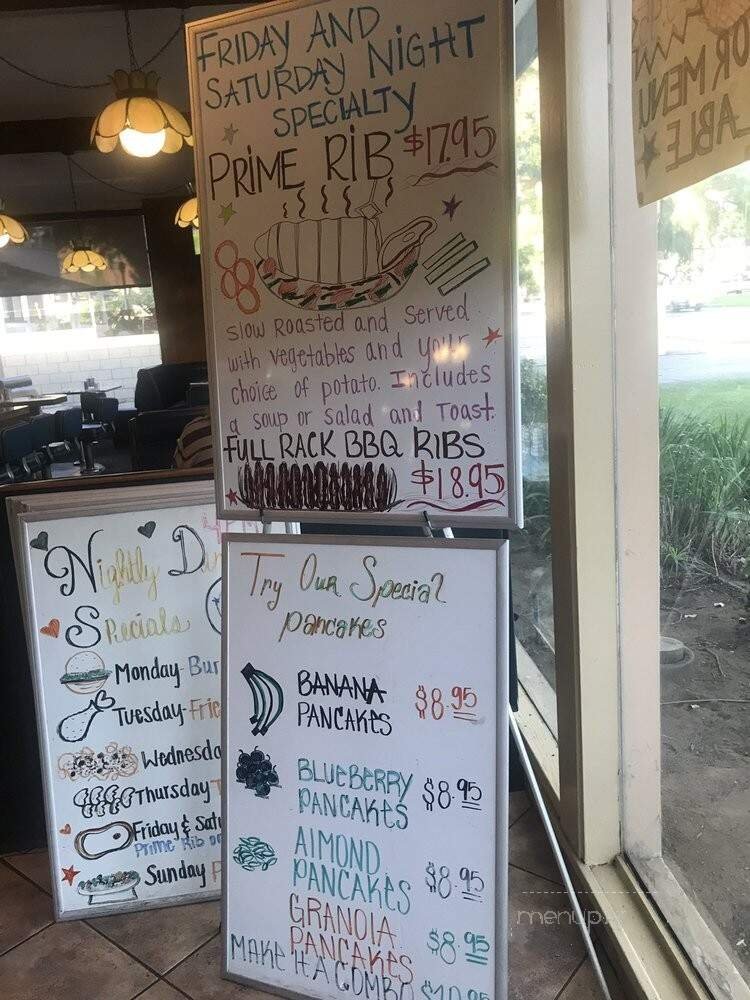 FRIDAY AND
SATURDAY NIGHT
SPECIALTY
PRIME RIB $17.95
slow Roasted and Served
with vegetables and your
choice of potato. Includes
a soup or salad and Toast.
FULL RACK BBQ RIBS
$18.95
Nightly
Specials
Monday-
Tuesday-
Thursday
Friday &
Prime Rib
Sunday
Try Our Special
pancakes
BANANA
PANCAKES $8.95
BLUEBERRY
PANCAKES $8.95
AlMOND
PANCAKES $8.95
GRANOlA
PANCAKES $8.95
MAKE IT A COMBO $10.95
OR MENU
menupix